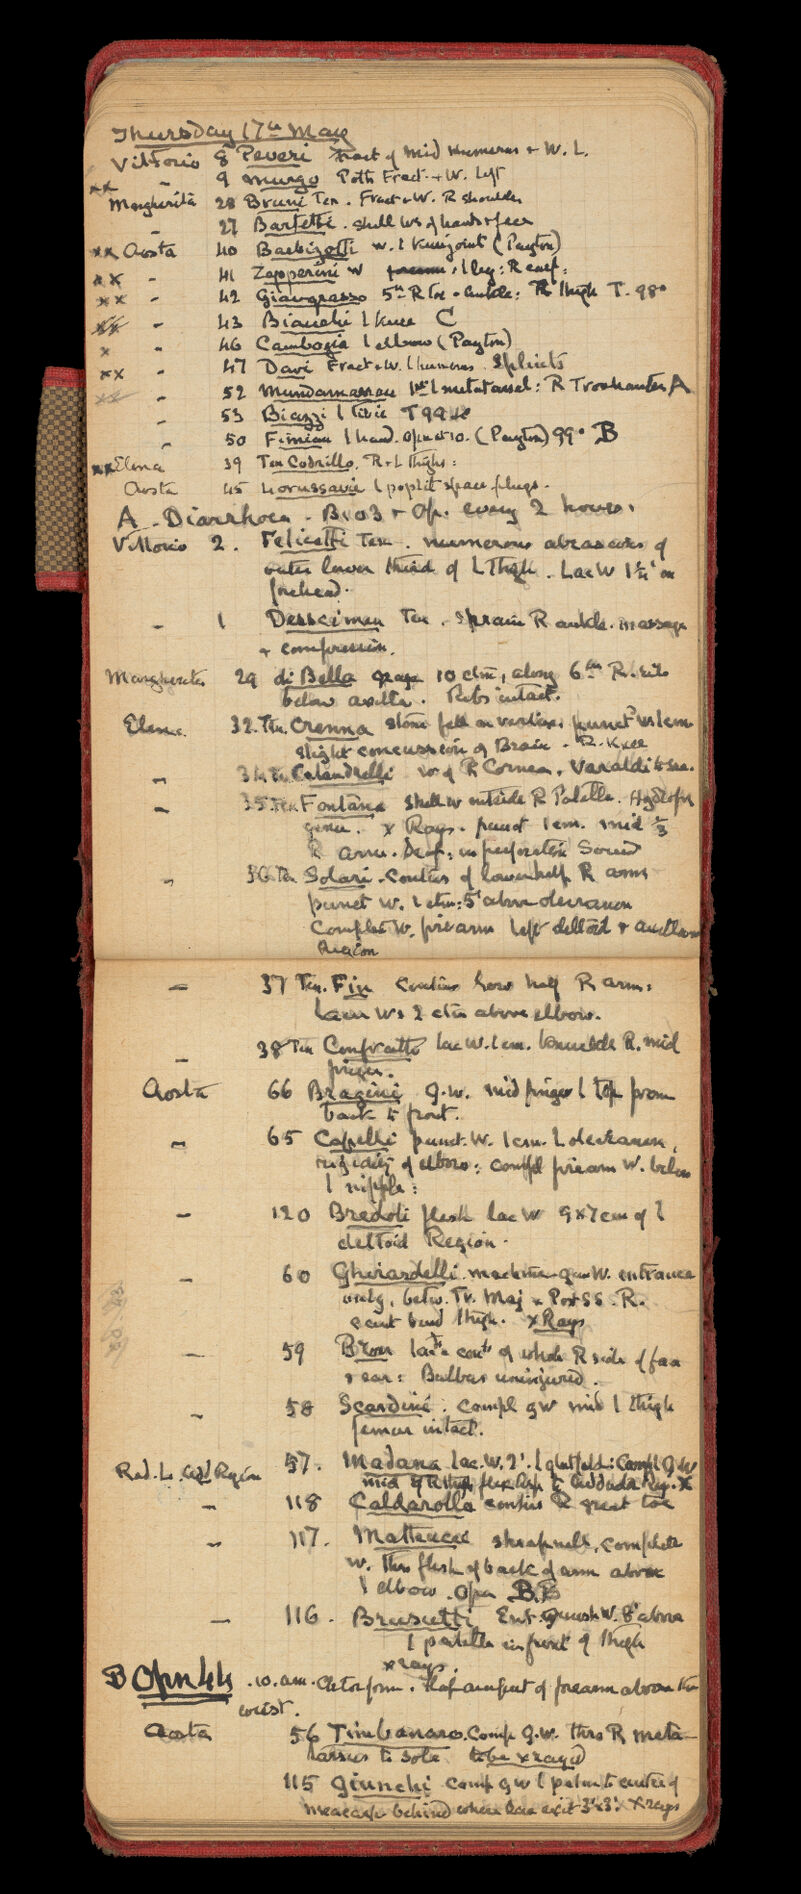 Thursday 17th May
Vittorio 8 Peveri Fract of Mid Humerus + W. L.
- 9 Murgo Potts Fract. + W. left
xx Margherita 28 Bruni Ten. Fract + W. R shoulder
- 27 Barletti. Shell Ws of hands + face
xx Aosta 40 Barbizotti W. l Kneejoint (Payton)
xx - 41 Zapperini W l leg: R calf:
xx - 42 Giangrasso 5th R toe - ankle: R thigh T. 98°
xx - 43 Bianchi l Knee C
x - 46 Cambogia l elbow (Payton)
xx - 47 Davi Fract + W. l humerus. Splints
xx - 52 1st l metatarsal: R Trochanter A
- 53 Biazzi l tibia T 99
- 50 l hand. Open at 10. (Payton) 99° B
xx Elena 39 Ten Codrillo. R + L thighs:
Aosta 45 l poplit space plugs.
A - Diarrhoea - Bis O3 + Op. every 2 hours.
Vittorio 2. Felicetti Ten. numerous abrasions of
outer lower third of L Thigh. Lac W 1¼" on
forehead.
- 1 Ten. Sprain R ankle. Massage
+ compression.
Margherita 29 di Bella graze 10 ctm, along 6th R. rib
below axilla. Ribs intact.
Elena 32. Ten. Crenna stone fell on vertex, punct W 1 cm
slight concussion of Brain - R. Knee
- 34 Ten Calandrelli w of R Cornea. Varaldi to see.
- 35 Ten Fontana shell w outside R Patella.
genu. x Rays. punct 1 cm. mid ⅓
R arm. Deaf: perforation Sound
- 36 Ten Solari - contus of lower half R arm
punct W. 1 ctm: 5" above olecranon
Complet W. firearm left deltoid + axillary
Region
- 37 Ten. Fin contus lower half R arm:
Lacer Ws 2 ctm above elbow.
- 38 Ten lac W. 1 cm. knuckle R. mid
finger.
Aosta 66 Bragini g.w. mid finger l top from
back to front.
- 65 Capelli punct. W. 1 cm. L olecranon,
rigidity of elbow: compl firearm W. below
l nipple:
- 120 Bredoli flesh lac W 9x7 cm of l
deltoid Region.
- 60 Ghirardelli. machine-gun W. entrance
only, betw. Tr. Maj + Post SS. R.
cent bend thigh. x Rays
- 59 Bron of whole R side of face
+ ear: Bulbus uninjured.
- 58 Scardini. Compl gw mid l thigh
femur intact.
57. Madana lac. W. 2". Compl G.W
mid of R thigh x
- 118 Caldarolla contus R great toe
- 117. Matteucci shrapnell, complete
W. thro flesh of back of arm above
l elbow. Open B.B
- 116. Bruscetti Ent. W. 8" above
l patella in front of thigh
x rays.
B Opn 44 . 10. a.m. Chloroform. Flap amput of forearm above the
wrist.
Aosta 56 Timbanaro. Comp g.w. thro R meta-
tarsus to sole to be x rayed
115 Giunchi comp g w l palm to centre of
metacarp behind where lac exit 3"x3". X rays